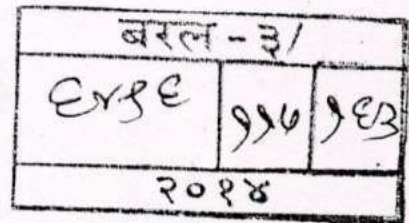 बरल - ३/
६४१६ ११७ १६३
२०१४